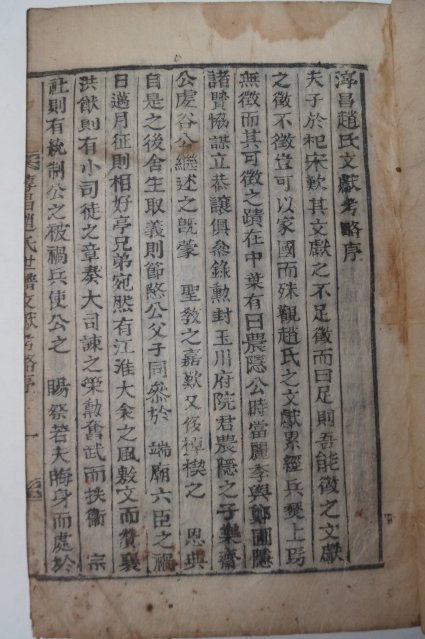 淳昌趙氏文獻考略序
夫子於杞宋歎其文獻之不足徵而曰足則吾能徵之文獻
之徵不徵豈可以家國而殊觀趙氏之文獻累經兵燹上焉
無徵而其可徵之蹟在中葉有曰農隱公時當麗季與鄭圃隱
諸賢協謀立恭讓俱叅錄勳封玉川府院君農隱之子樂齋
公虔谷公繼述之旣蒙 聖教之嘉歎又後棹楔之 恩典
自是之後舍生取義則節愍公父子同叅於 端廟六臣之禍
日邁月征則相好亭兄弟宛然有江淮大余之風敷文而贊襄
洪猷則有小司徒之章奏大司諫之榮勳奮武而扶衞 宗
社則有統制公之被禍兵使公之 賜祭若夫晦身而處於
淳昌趙氏世譜文獻考略序 一